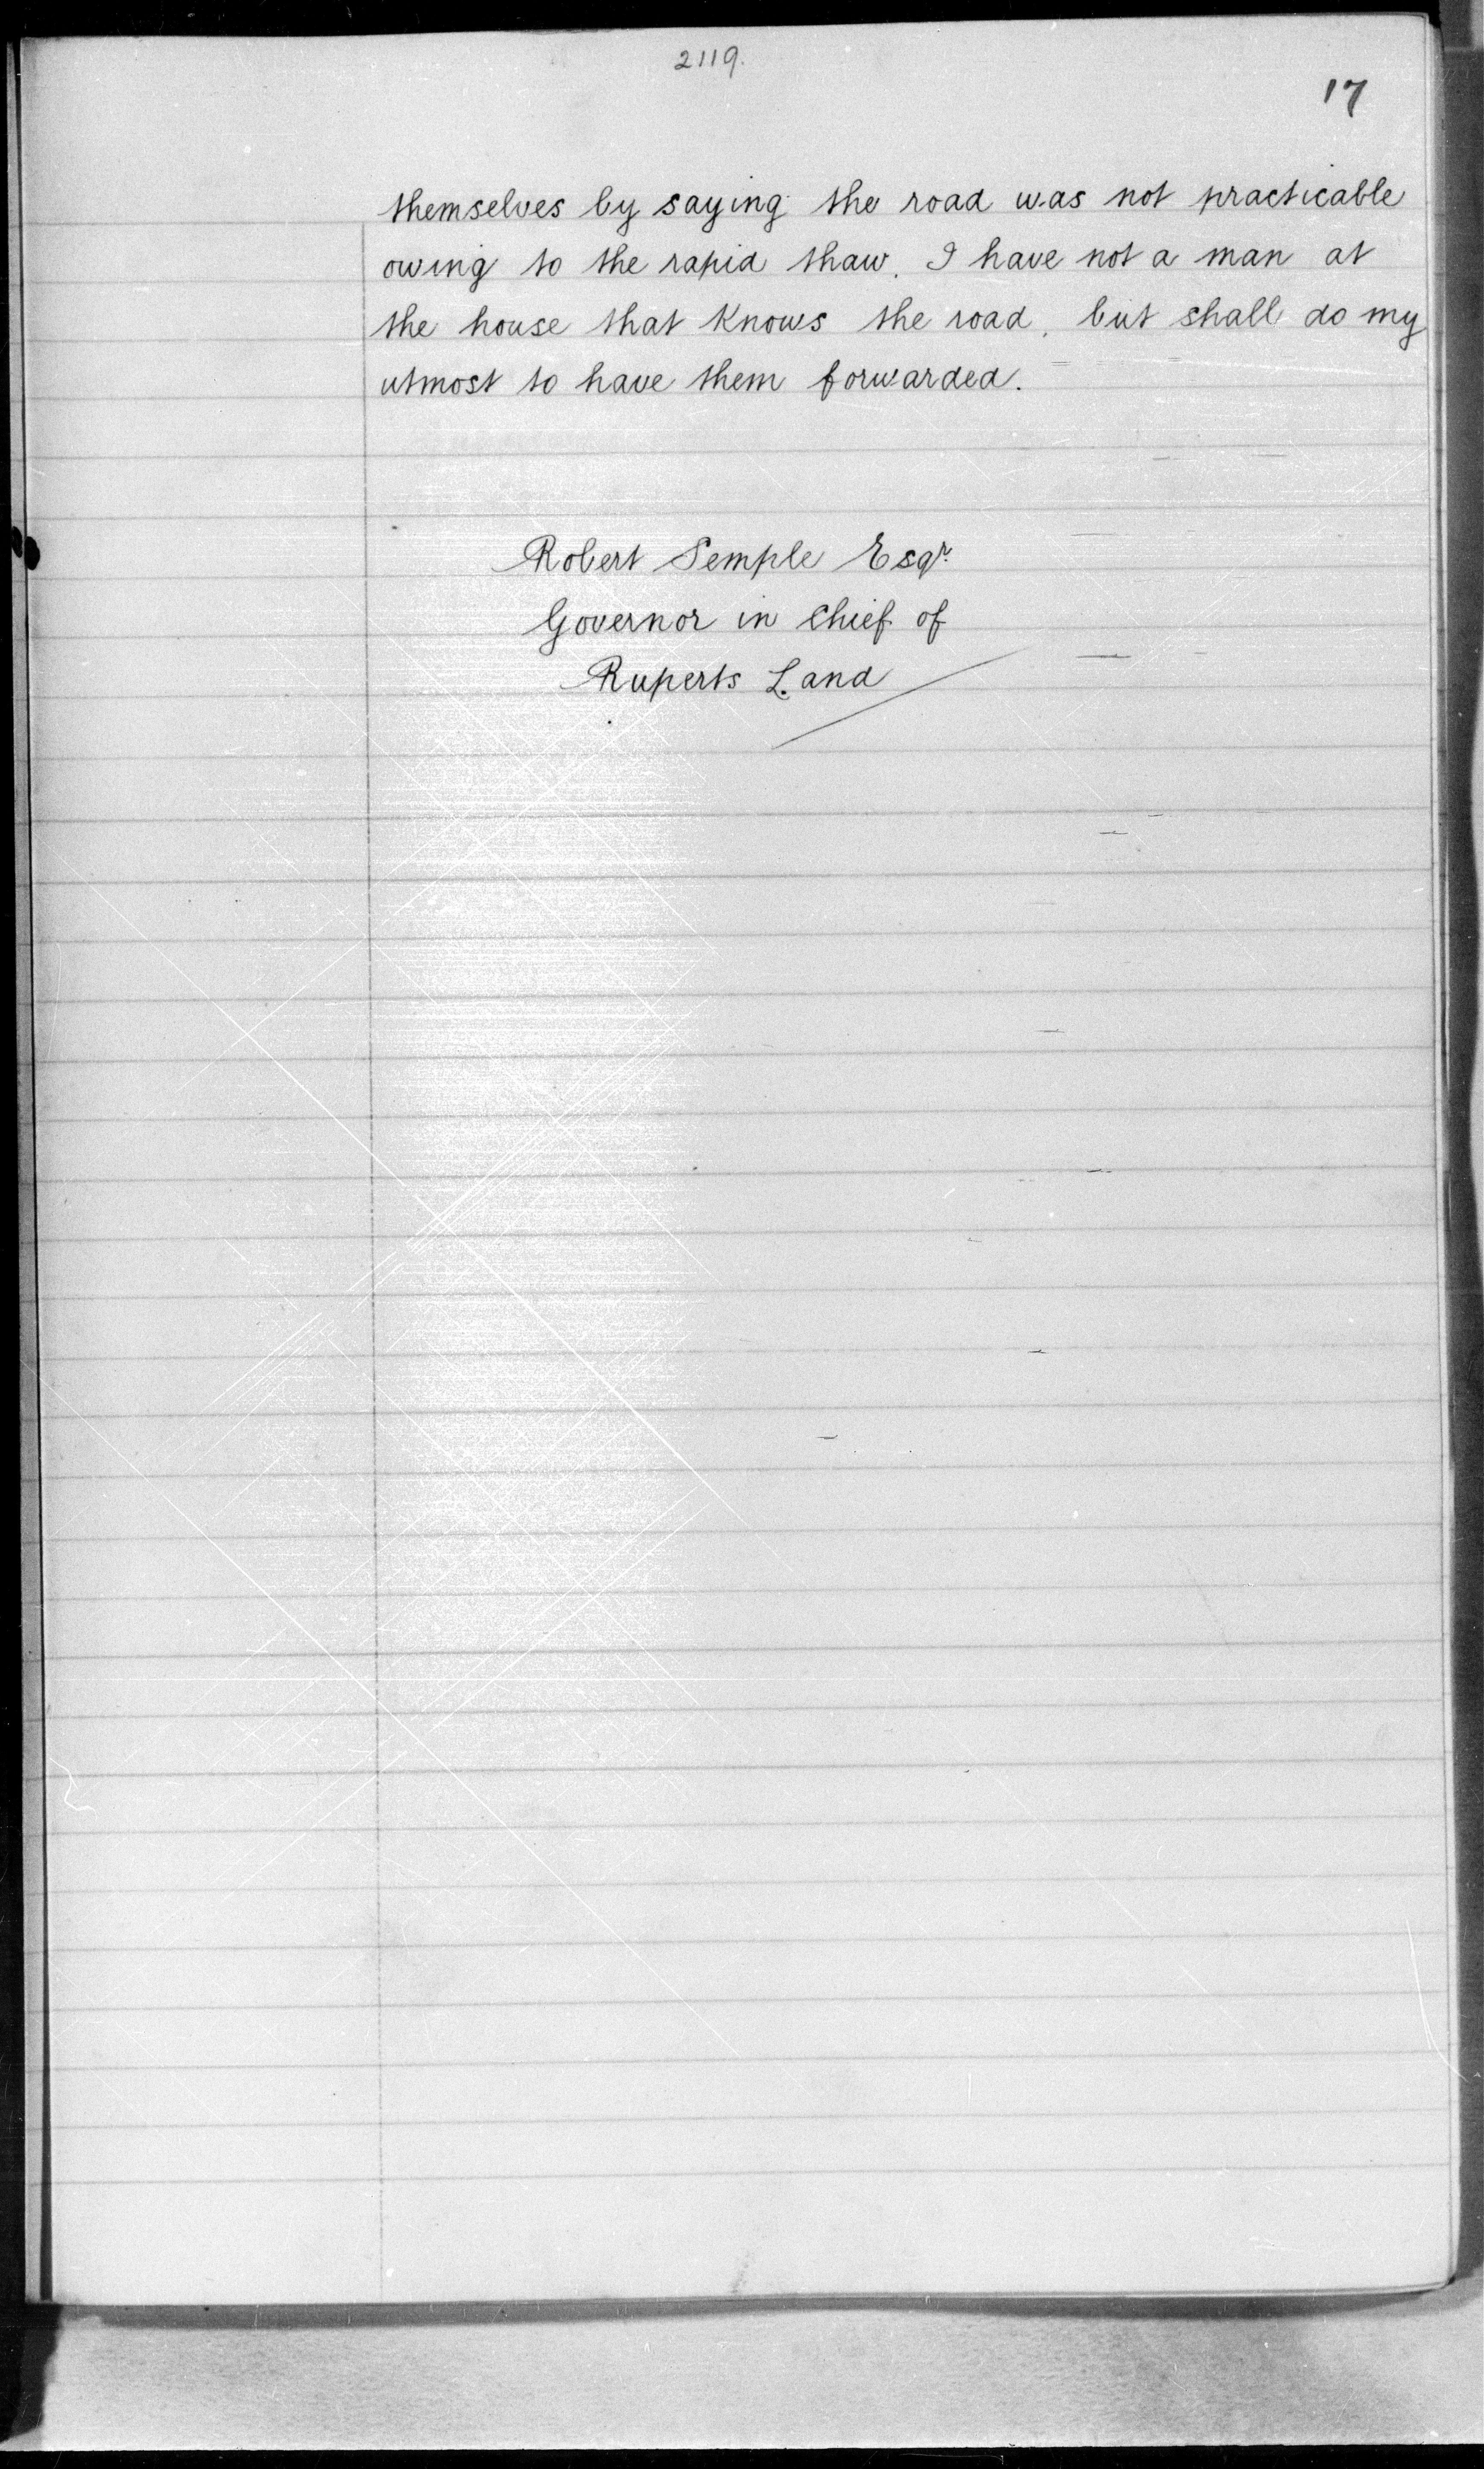 2119.
17
themselves by saying the road was not practicable
owing to the rapid thaw. I have not a man at
the house that Knows the road, but shall do my
utmost to have them forwarded.
Robert Semple Esqr.
Governor in Chief of
Ruperts Land